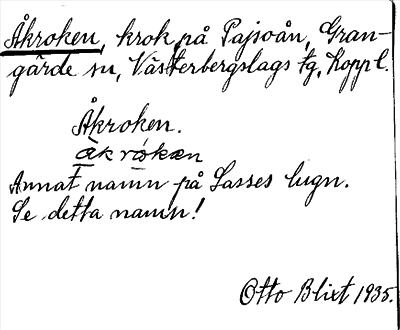 Åkroken, krok på Pajsoån, Gran-
gärde sn, Västerbergslags tg, Kopp l.
Åkroken.
åkrókæn
Annat namn på Lasses lugn.
Se detta namn!
Otto Blixt 1935.